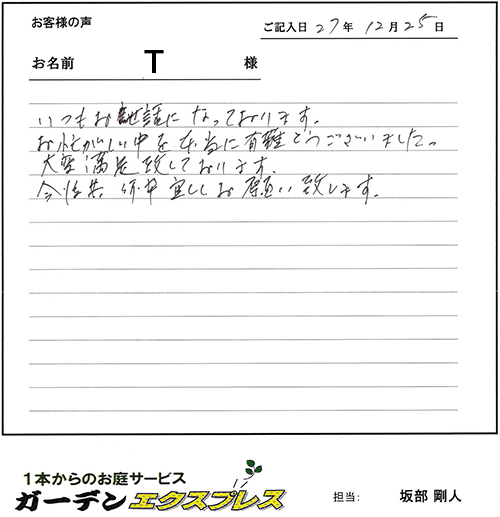 お客様の声
ご記入日 27年 12月 25日
お名前 T 様
いつもお世話になっております。
お忙がしい中を本当に有難とうございました。
大変満足致しております。
今後共 何卒宜しくお願い致します。
1本からのお庭サービス
ガーデンエクスプレス
担当: 坂部 剛人